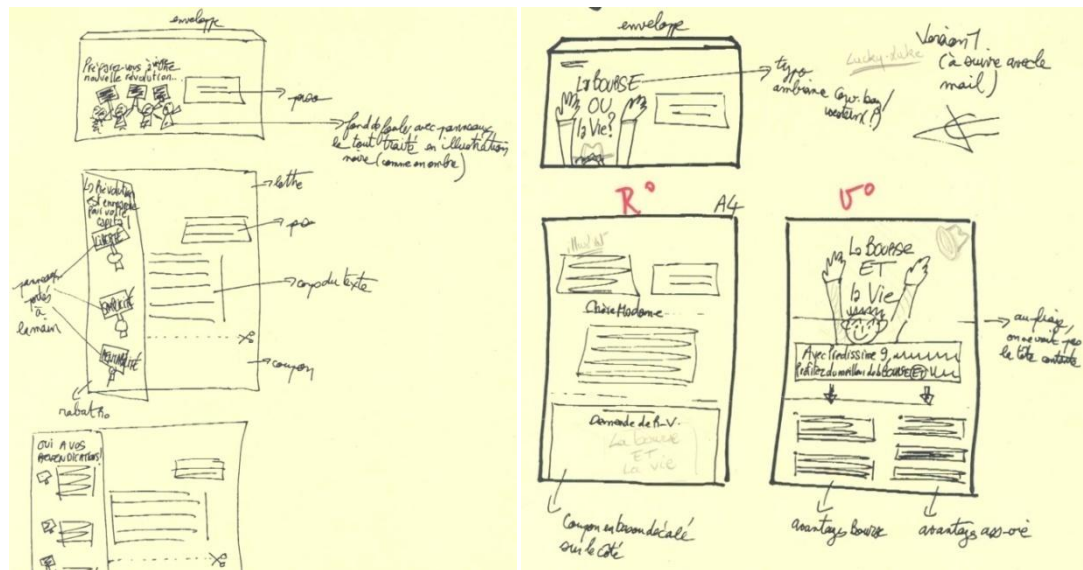 enveloppe
Préparez-vous à votre
nouvelle révolution...
fond de foule avec panneaux,
le tout traité en illustration
noire (comme en ombre)
La Révolution
est en marche
pour votre
capital!
LIBERTÉ
SIMPLICITÉ
panneaux
à
la main
corps du texte
coupon
OUI A VOS
REVENDICATIONS!
enveloppe
La BOURSE
OU
la Vie?
typo
ambiance Cow-boy/
western (?)
Lucky-Luke
Version 1.
(à suivre avec le
mail)
R°
A4
Chère Madame
Demande de R-V.
La bourse
ET
La vie
Coupon en besoin décalé
sur le côté
V°
La BOURSE
ET
la Vie
Avec Prédissime 9,
Profitez du meilleur de la BOURSE ET
on ne voit pas
la tête
avantages Bourse
avantages ass-vie